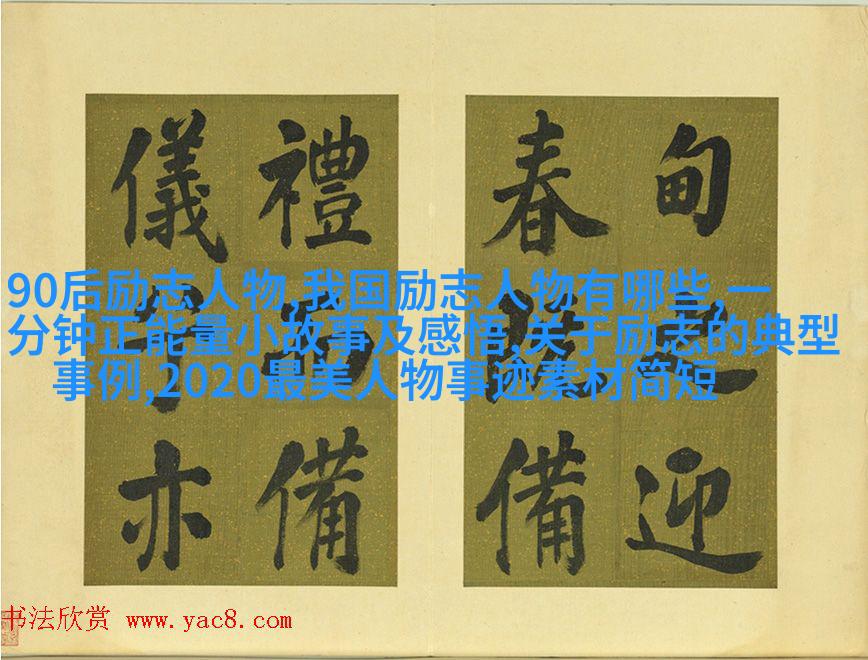 甸迎
春備
禮備
儀亦
90后励志人物,我国励志人物有哪些,一
分钟正能量小故事及感悟,关于励志的典型
事例,2020最美人物事迹素材简短
书法欣赏 www.yac8.com